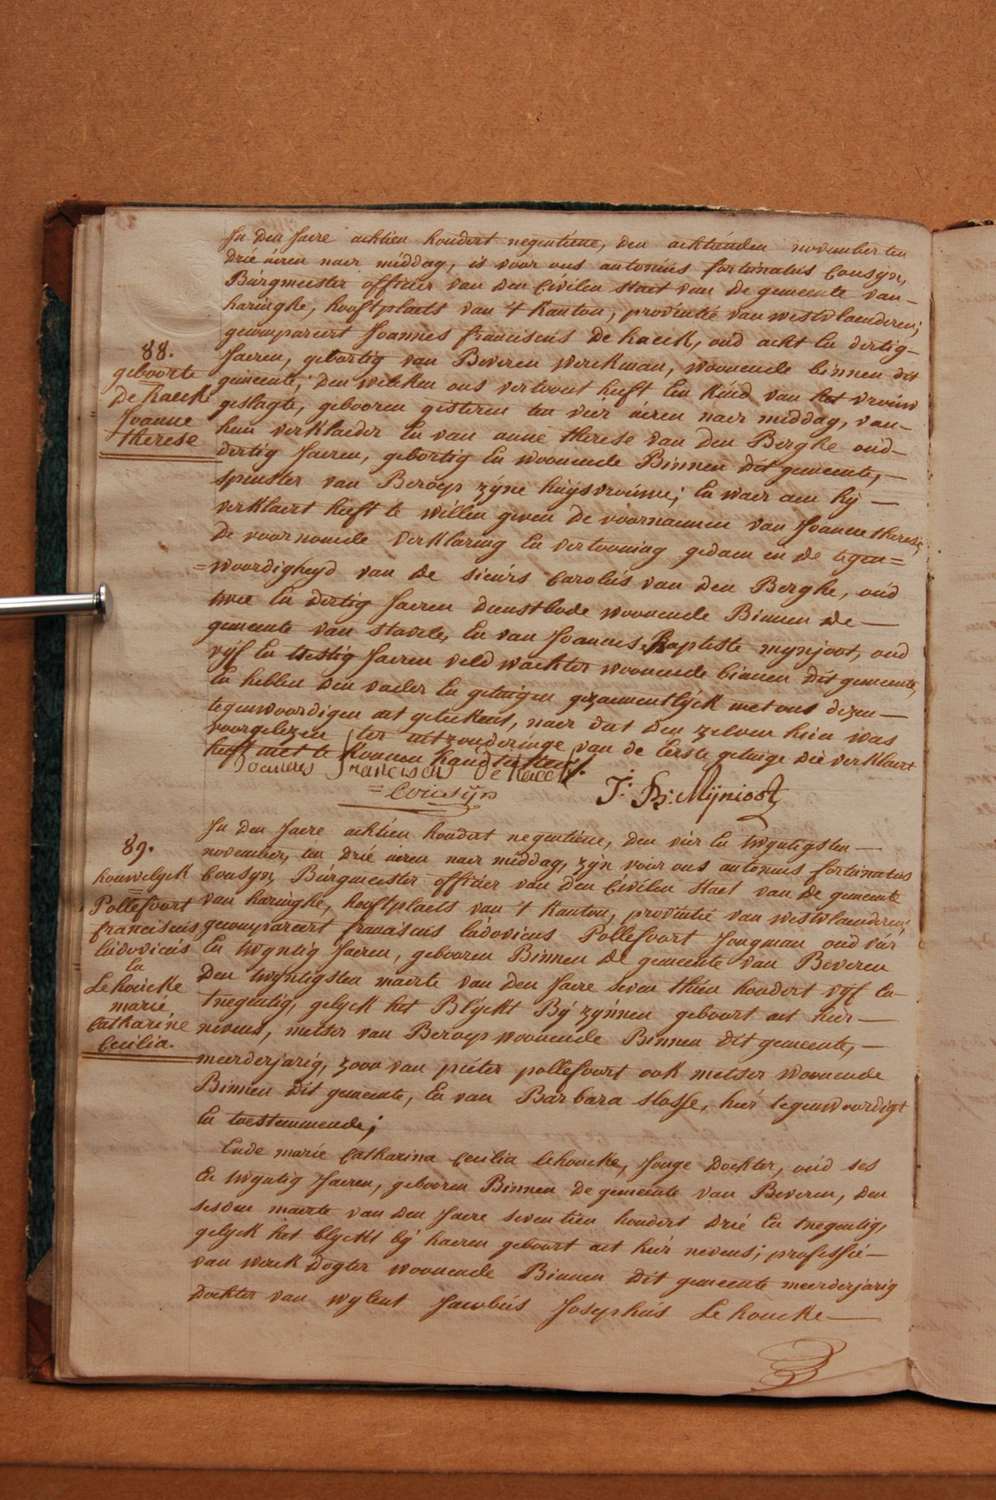 88.
geboorte
De haeck
Joanne
therese
In den Jaere achtien hondert negentiene, den achtienden november ten
drie uren naer middag, is voor ons antonius fortunatus Cousyn,
Burgmeister officier van den Civilen staet van de gemeente van-
haringhe, hooftplaets van 't Kanton, provintie van westvlaenderen;
gecompareert Joannes franciscus De haeck, oud acht en dertig-
Jaeren, gebortig van Beveren werckman, woonende binnen dit
gemeente; den welcken ons vertoont heeft een kind van het vrouw
geslagte, gebooren gisteren ten vier uren naer middag, van-
hem verklaeder En van anne therese van den Berghe oud-
dertig Jaeren, gebortig En woonende Binnen dit gemeente,-
spinster van Beroep zyne huysvrouwe; En waer aen hy -
verklaert heeft te willen geven de voornaemen van Joanne therese,
de voornoemde verklaring En vertooning gedaen en de tegen=
=woordigheyd van de sieurs Carolus van den Berghe, oud
twee En dertig Jaeren dienstbode woonende Binnen de-
gemeente van stavele, En van Joannes Baptiste mynjoot, oud
vyf En tsestig Jaeren veldwachter woonende binnen dit gemeente,
En hebben den vader En getuigen gezaementlyck met ons dezen-
tegenwoordigen act geteekent, naer dat den zelven hun was
voorgelezen ter uitzonderinge van de Eerste getuige die verklaert
heeft niet te konnen handteeken.
Joannes Franciscus De Haeck
= Cousyn
J: B: Mynioot
89.
houwelyck
Pollefoort
franciscus
ludovicus
En
Lehoucke
marie
Catharine
Cecilia.
In den Jaere achtien hondert negentiene, den vier En twyntigsten-
november, ten drie uren naer middag, zyn voor ons antonius fortunatus
Cousyn, Burgmeister officier van den Civilen staet van de gemeente
van haringhe, hooftplaets van 't Kanton, provintie van westvlaenderen;
gecompareert franciscus ludovicus Pollefoort Jongman oud vier
En twyntig Jaeren, gebooren Binnen de gemeente van Beveren
den twyntigsten maerte van den Jaere seven thien hondert vyf en-
tnegentig, gelyck het Blyckt By zynnen geboort act hier-
nevens, metser van Beroep woonende Binnen dit gemeente,-
meerderjarig, zoon van pieter pollefoort ook metser woonende
Binnen dit gemeente, En van Barbara stasse, hier tegenwoordigt
En toestemmende;
Ende marie Catharina Cecilia Lehoucke, Jonge Dochter, oud ses
En twyntig Jaeren, gebooren Binnen de gemeente van Beveren, den
sesden maerte van den Jaere seventien hondert drie En tnegentig,
gelyck het blyckt by haeren geboort act hier nevens; professie-
van werck Dogter woonende Binnen dit gemeente meerderjarig
Dochter van wylent Jacobus Josephus Lehoucke-